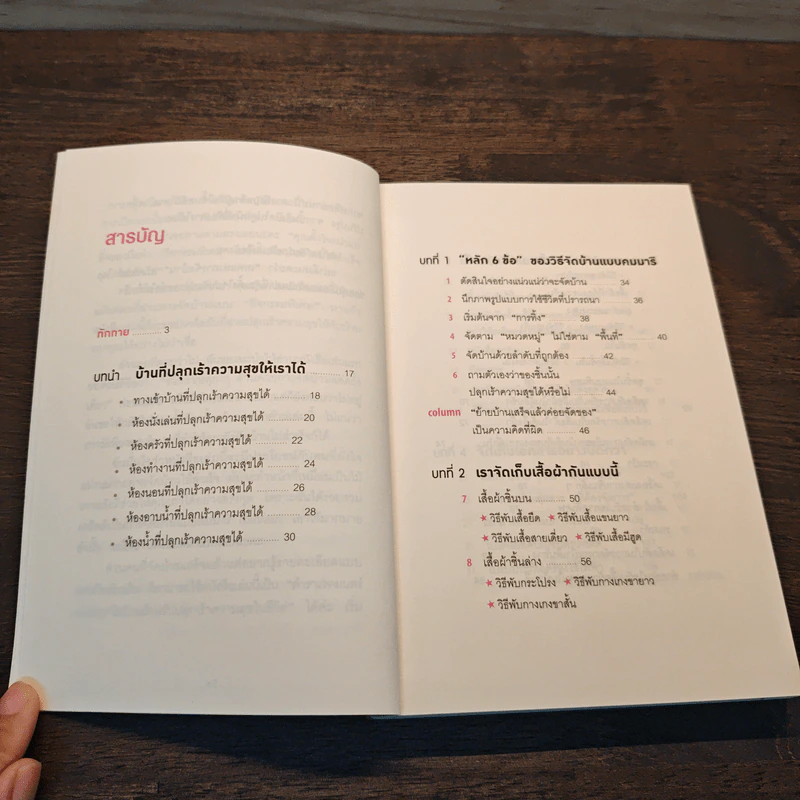 สารบัญ
ทักทาย ........... 3
บทนำ บ้านที่ปลุกเร้าความสุขให้เราได้ ........... 17
• ทางเข้าบ้านที่ปลุกเร้าความสุขได้ ........... 18
• ห้องนั่งเล่นที่ปลุกเร้าความสุขได้ ........... 20
• ห้องครัวที่ปลุกเร้าความสุขได้ ........... 22
• ห้องทำงานที่ปลุกเร้าความสุขได้ ........... 24
• ห้องนอนที่ปลุกเร้าความสุขได้ ........... 26
• ห้องอาบน้ำที่ปลุกเร้าความสุขได้ ........... 28
• ห้องน้ำที่ปลุกเร้าความสุขได้ ........... 30
บทที่ 1 "หลัก 6 ข้อ" ของวิธีจัดบ้านแบบคมมาริ
1 ตัดสินใจอย่างแน่วแน่ว่าจะจัดบ้าน ........... 34
2 นึกภาพรูปแบบการใช้ชีวิตที่ปรารถนา ........... 36
3 เริ่มต้นจาก "การทิ้ง" ........... 38
4 จัดตาม "หมวดหมู่" ไม่ใช่ตาม "พื้นที่" ........... 40
5 จัดบ้านด้วยลำดับที่ถูกต้อง ........... 42
6 ถามตัวเองว่าของชิ้นนั้น
ปลุกเร้าความสุขได้หรือไม่ ........... 44
column "ย้ายบ้านเสร็จแล้วค่อยจัดของ"
เป็นความคิดที่ผิด ........... 46
บทที่ 2 เราจัดเก็บเสื้อผ้ากันแบบนี้
7 เสื้อผ้าชิ้นบน ........... 50
★ วิธีพับเสื้อยืด ★ วิธีพับเสื้อแขนยาว
★ วิธีพับเสื้อสายเดี่ยว ★ วิธีพับเสื้อมีฮูด
8 เสื้อผ้าชิ้นล่าง ........... 56
★ วิธีพับกระโปรง ★ วิธีพับกางเกงขายาว
★ วิธีพับกางเกงขาสั้น